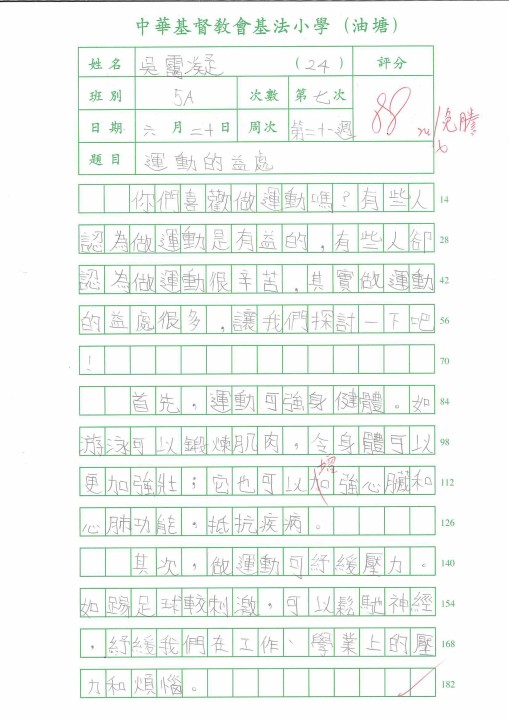 中華基督教會基法小學（油塘）
姓名 吳靄凝 （24） 評分
班別 5A 次數 第七次 88
日期 六月二十日 周次 第二十一週 免謄
題目 運動的益處
你們喜歡做運動嗎？有些人 14
認為做運動是有益的，有些人卻 28
認為做運動很辛苦，其實做運動 42
的益處很多，讓我們探討一下吧 56
！ 70
首先，運動可強身健體。如 84
游泳可以鍛煉肌肉，令身體可以 98
增
更加強壯；它也可以加強心臟和 112
心肺功能，抵抗疾病。 126
其次，做運動可紓緩壓力。 140
如踢足球較刺激，可以鬆馳神經 154
，紓緩我們在工作、學業上的壓 168
力和煩惱。 182